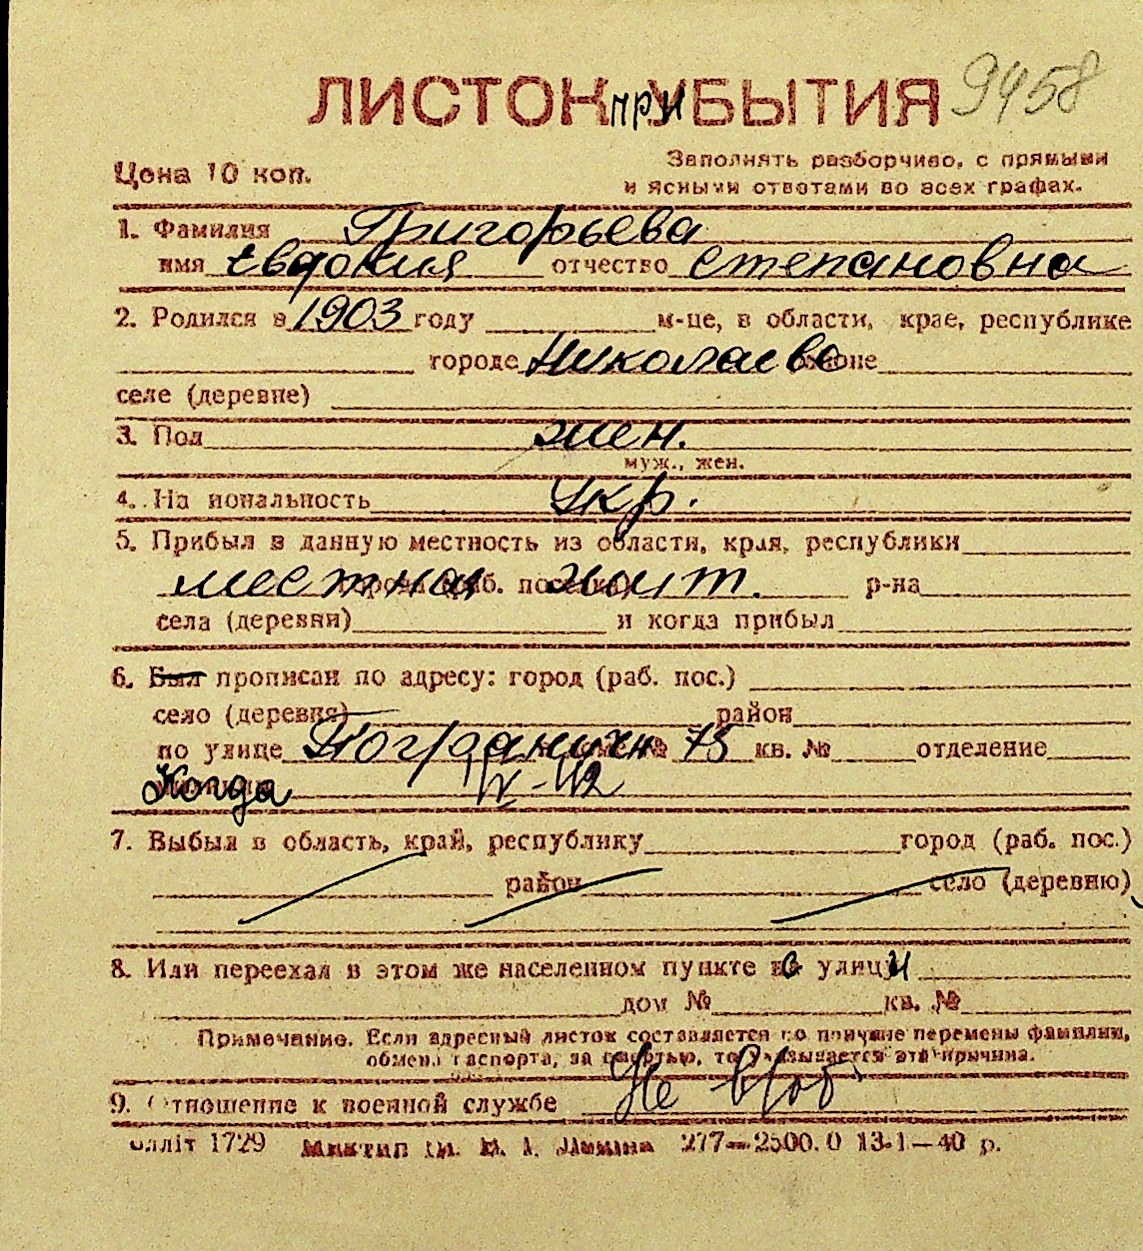 ЛИСТОК ПРИБЫТИЯ 9458
Цена 10 коп.
Заполнять разборчиво, с прямыми
и ясными ответами во всех графах.
1. Фамилия Григорьева
имя Евдокия отчество Степановна
2. Родился в 1903 году м-це, в области, крае, республике
городе Николаеве районе
селе (деревне)
3. Пол жен.
муж., жен.
4. Национальность Укр.
5. Прибыл в данную местность из области, края, республики
местная жит. р-на
села (деревни) и когда прибыл
6. Был прописан по адресу: город (раб. пос.)
село (деревня) район
по улице Пограничн 75 кв. № отделение
Когда IV-42
7. Выбыл в область, край, республику город (раб. пос.)
район село (деревню)
8. Или переехал в этом же населенном пункте с улицы
дом № кв. №
Примечание. Если адресный листок составляется по причине перемены фамилии,
обмена паспорта, за смертью, то указывается эта причина.
9. Отношение к военной службе Не в/об
1729 277—2500.0 13-1—40 р.